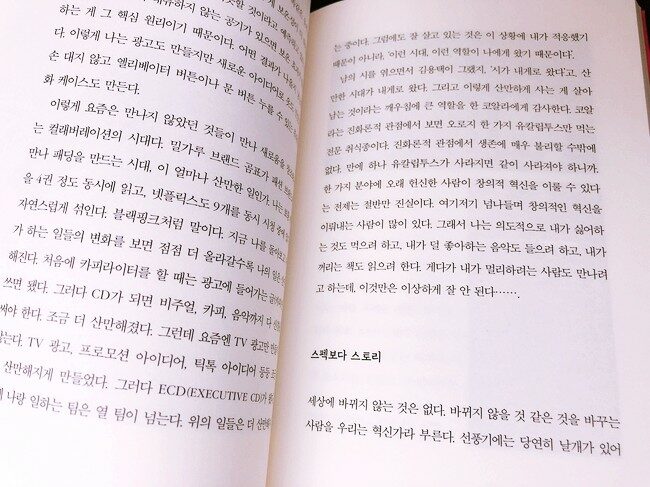 하는 게 그 핵심 원리이기 때문이다. 어떤 결과가
다. 이렇게 나는 광고도 만들지만 새로운 아이디어로
손 대지 않고 엘리베이터 버튼이나 문 버튼 누를 수 있는
화 케이스도 만든다.
이렇게 요즘은 만나지 않았던 것들이 만나 새로움을
는 컬래버레이션의 시대다. 밀가루 브랜드 곰표가 패션
만나 패딩을 만드는 시대, 이 얼마나 산만한 일인가. 나는
을 4권 정도 동시에 읽고, 넷플릭스도 9개를 동시 시청
자연스럽게 섞인다. 블랙핑크처럼 말이다. 지금 나를
가 하는 일들의 변화를 보면 점점 더 올라갈수록 나의 일은
해진다. 처음에 카피라이터를 할 때는 광고에 들어가는
쓰면 됐다. 그러다 CD가 되면 비주얼, 카피, 음악까지 다
써야 한다. 조금 더 산만해졌다. 그런데 요즘엔 TV 광고만
는다. TV 광고, 프로모션 아이디어, 틱톡 아이디어 등등
산만해지게 만들었다. 그러다 ECD(EXECUTIVE CD)가
나랑 일하는 팀은 열 팀이 넘는다. 위의 일들은 더
는 중이다. 그럼에도 잘 살고 있는 것은 이 상황에 내가 적응했기
때문이 아니라, '이런 시대, 이런 역할이 나에게 왔기 때문이다'.
남의 시를 엮으면서 김용택이 그랬지, '시가 내게로 왔다'고, 산
만한 시대가 내게로 왔다. 그리고 이렇게 산만하게 사는 게 살아
남는 것이라는 깨우침에 큰 역할을 한 코알라에게 감사한다. 코알
라는 진화론적 관점에서 보면 오로지 한 가지 유칼립투스만 먹는
전문 취식종이다. 진화론적 관점에서 생존에 매우 불리할 수밖에
없다. 만에 하나 유칼립투스가 사라지면 같이 사라져야 하니까.
한 가지 분야에 오래 헌신한 사람이 창의적 혁신을 이룰 수 있다
는 전제는 절반만 진실이다. 여기저기 넘나들며 창의적인 혁신을
이뤄내는 사람이 많이 있다. 그래서 나는 의도적으로 내가 싫어하
는 것도 먹으려 하고, 내가 덜 좋아하는 음악도 들으려 하고, 내가
꺼리는 책도 읽으려 한다. 게다가 내가 멀리하려는 사람도 만나려
고 하는데, 이것만은 이상하게 잘 안 된다…….
스펙보다 스토리
세상에 바뀌지 않는 것은 없다. 바뀌지 않을 것 같은 것을 바꾸는
사람을 우리는 혁신가라 부른다. 선풍기에는 당연히 날개가 있어